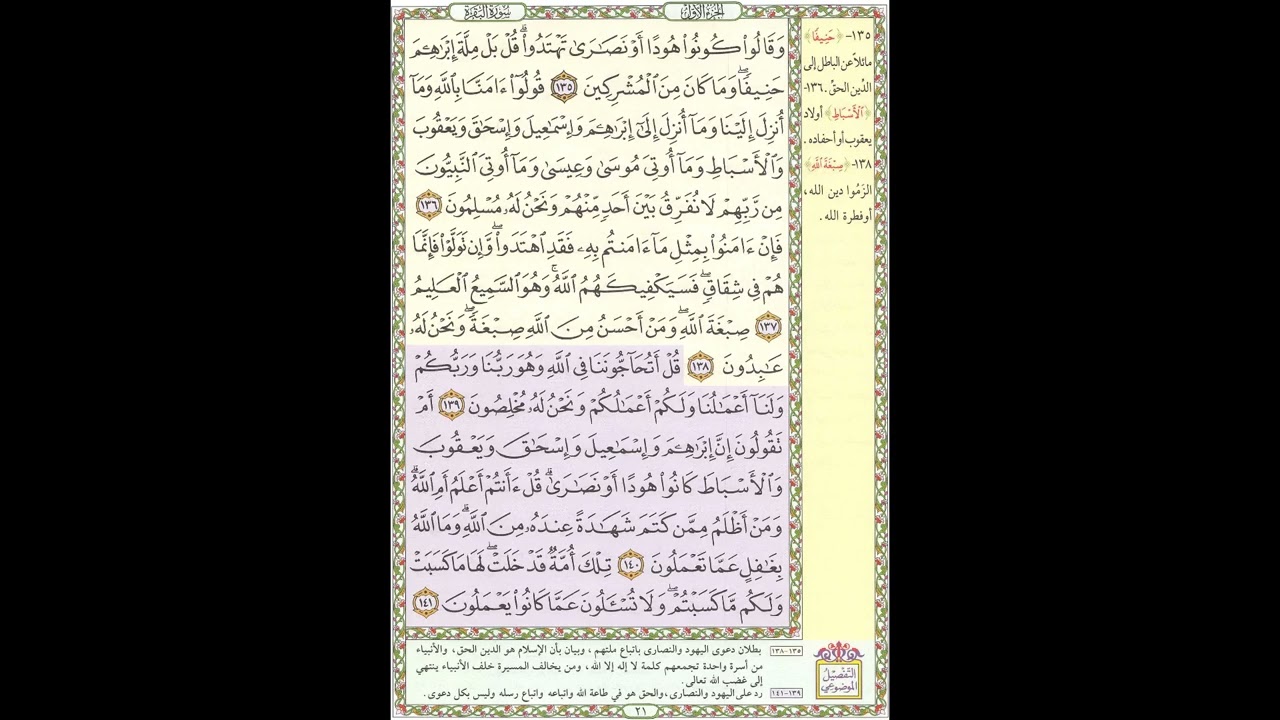 الجزء الأول
سورة البقرة
وَقَالُوا۟ كُونُوا۟ هُودًا أَوْ نَصَٰرَىٰ تَهْتَدُوا۟ ۗ قُلْ بَلْ مِلَّةَ إِبْرَٰهِـۧمَ
حَنِيفًا ۖ وَمَا كَانَ مِنَ ٱلْمُشْرِكِينَ ١٣٥ قُولُوٓا۟ ءَامَنَّا بِٱللَّهِ وَمَآ
أُنزِلَ إِلَيْنَا وَمَآ أُنزِلَ إِلَىٰٓ إِبْرَٰهِـۧمَ وَإِسْمَٰعِيلَ وَإِسْحَٰقَ وَيَعْقُوبَ
وَٱلْأَسْبَاطِ وَمَآ أُوتِىَ مُوسَىٰ وَعِيسَىٰ وَمَآ أُوتِىَ ٱلنَّبِيُّونَ
مِن رَّبِّهِمْ لَا نُفَرِّقُ بَيْنَ أَحَدٍ مِّنْهُمْ وَنَحْنُ لَهُۥ مُسْلِمُونَ ١٣٦
فَإِنْ ءَامَنُوا۟ بِمِثْلِ مَآ ءَامَنتُم بِهِۦ فَقَدِ ٱهْتَدَوا۟ ۖ وَّإِن تَوَلَّوْا۟ فَإِنَّمَا
هُمْ فِى شِقَاقٍ ۖ فَسَيَكْفِيكَهُمُ ٱللَّهُ ۚ وَهُوَ ٱلسَّمِيعُ ٱلْعَلِيمُ
١٣٧ صِبْغَةَ ٱللَّهِ ۖ وَمَنْ أَحْسَنُ مِنَ ٱللَّهِ صِبْغَةً ۖ وَنَحْنُ لَهُۥ
عَٰبِدُونَ ١٣٨ قُلْ أَتُحَآجُّونَنَا فِى ٱللَّهِ وَهُوَ رَبُّنَا وَرَبُّكُمْ
وَلَنَآ أَعْمَٰلُنَا وَلَكُمْ أَعْمَٰلُكُمْ وَنَحْنُ لَهُۥ مُخْلِصُونَ ١٣٩ أَمْ
تَقُولُونَ إِنَّ إِبْرَٰهِـۧمَ وَإِسْمَٰعِيلَ وَإِسْحَٰقَ وَيَعْقُوبَ
وَٱلْأَسْبَاطَ كَانُوا۟ هُودًا أَوْ نَصَٰرَىٰ ۗ قُلْ ءَأَنتُمْ أَعْلَمُ أَمِ ٱللَّهُ ۗ
وَمَنْ أَظْلَمُ مِمَّن كَتَمَ شَهَٰدَةً عِندَهُۥ مِنَ ٱللَّهِ ۗ وَمَا ٱللَّهُ
بِغَٰفِلٍ عَمَّا تَعْمَلُونَ ١٤٠ تِلْكَ أُمَّةٌ قَدْ خَلَتْ ۖ لَهَا مَا كَسَبَتْ
وَلَكُم مَّا كَسَبْتُمْ ۖ وَلَا تُسْـَٔلُونَ عَمَّا كَانُوا۟ يَعْمَلُونَ ١٤١
١٣٥- ﴿حَنِيفًا﴾
مائلاً عن الباطل إلى
الدِّين الحقّ. ١٣٦-
﴿ٱلْأَسْبَاطِ﴾ أولاد
يعقوب أو أحفاده.
١٣٨- ﴿صِبْغَةَ ٱللَّهِ﴾
الزَمُوا دين الله،
أو فطرة الله.
التَّفْصِيلُ
الموضوعي
١٣٥-١٣٨ بطلان دعوى اليهود والنصارى باتباع ملتهم، وبيان بأن الإسلام هو الدين الحق، والأنبياء
من أسرة واحدة تجمعهم كلمة لا إله إلا الله، ومن يخالف المسيرة خلف الأنبياء ينتهي
إلى غضب الله تعالى.
١٣٩-١٤١ رد على اليهود والنصارى، والحق هو في طاعة الله واتباعه واتباع رسله وليس بكل دعوى.
٢١